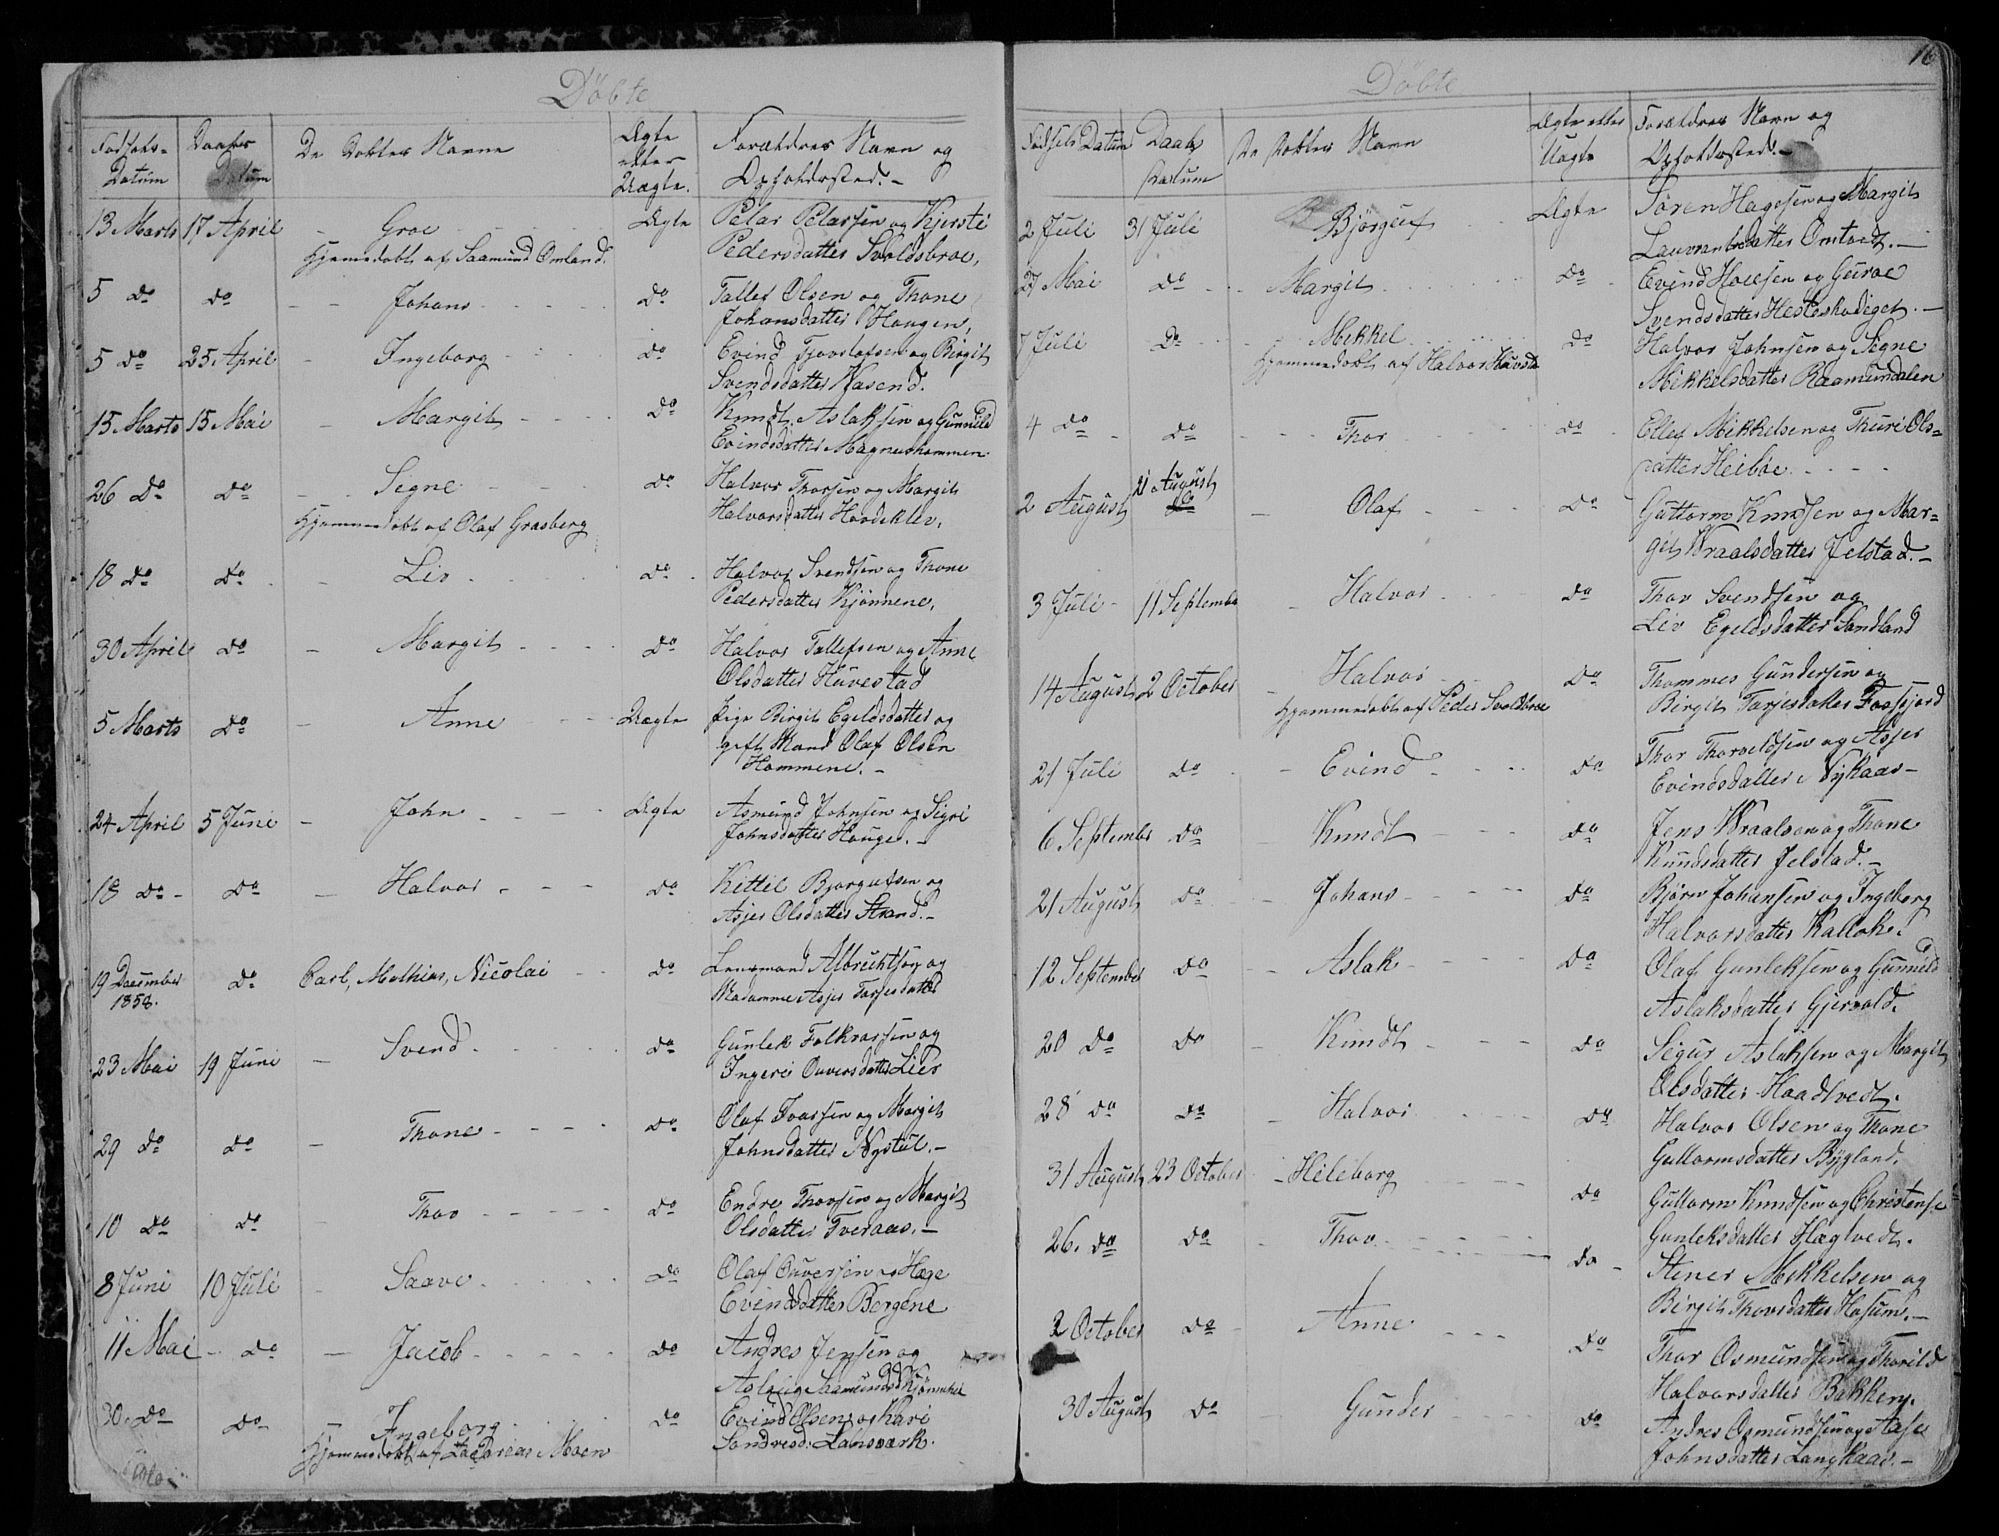 Döbte
Fødsels- Datum
Daabs Datum
De Döbtes Navne
Ægte eller Uægte.
Forældres Navn og Opholdssted. -
13 Marts 17 April - Groe Ægte Peder Pedersen og Kjersti
Hjemedøbt af Saamund Omland. Pedersdatter Svoldsbroe,
5 do do - - Johans do Tallef Olsen og Thone
Johansdatter Haugen,
5 do 25 April - Ingeborg do Evind Tjovslofsen og Birgit
Svendsdatter Kasend.
15 Marts 15 Mai - Margit do Knudt Aslaksen og Gunnild
Evindsdatter Magnushommen.
26 do do - Segne do Halvor Thorsen og Margit
Hjemmedøbt af Olaf Grasberg Halvorsdatter Hovdeklev.
18 do do - Liv do Halvor Svendsen og Thone
Pedersdatter Kjönnene,
30 April do - Margit do Halvor Tallefsen og Anne
Olsdatter Huvestad
5 Marts do - Anne Uægte Pige Birgit Egeldsdatter og
gift Mand Olaf Olsen
Hommene. -
24 April 5 Juni - John Ægte Asmund Johnsen og Sigri
Johnsdatter Hauge. -
18 do - do - Halvor do Kittil Bjorgufsen og
Asjer Olsdatter Strand. -
19 December 1858. do Carl, Mathias, Nicolai do Lensmand Albrechtsen og
Madamme Asjer Tarjesdatter
23 Mai 19 Juni - Svend do Gunlek Folkvorsen og
Ingeri Ouversdatter Lier
29 do do - Thone do Olaf Ivarsen og Margit
Johnsdatter Nystül. -
10 do do - Thor do Endre Thorsen og Margit
Olsdatter Tveraas. -
8 Juni 10 Juli - Saave do Olaf Ouversen og Hæge
Evindsdatter Bergene
11 Mai - do - Jacob do Andres Jensen og
Aslaug Saamundsd Kjönnekei
30. do do - Ingeborg do Evind Olsen og Kari
Hjemmedøbt af Zacarias Moen Sondresd: Laosværk.
16
Döbte
Fødsels Datum
Daabs Datum
De Døbtes Navn
Ægte eller Uægte
Forældres Navn og Opholdssted. -
2 Juli 31 Juli Björguf Ægte Sören Hagesen og Margit
Lauvrantsdatter Omtvedt. -
27 Mai do Margit do Evind Hollesen og Guroe
Svendsdatter Hesteskodiget. -
7 Juli do Mikkel do Halvor Johnsen og Segne
Hjemmedøbt af Halvor Huvsta Mikkelsdatter Raamundalen
4 do do Thor do Ellef Mikkelsen og Thuri Ols=
datter Heiböe
2 August 21 August do - Olaf do Guttorm Knudsen og Mar=
git Vraalsdatter Jelstad. -
3 Juli 11 September - Halvor do Thor Svendsen og
Liv Egeldsdatter Sandland
14 August 2 October - Halvor do Thommes Gundersen og
Hjemmedøbt af Peder Svoldbroe Birgit Tarjesdatter Fossfjord
21 Juli do - Evind do Thor Thoreldsen og Asjer
Evindsdatter Nykaas -
6 September do - Knudt do Jens Vraalsen og Thone
Knudsdatter Jelstad. -
21 August do - Johans do Björn Johansen og Ingeborg
Halvorsdatter Kallok.
12 September do - - Aslak do Olaf Gunleksen og Gunnild
Aslaksdatter Gjervold.
20 do do - Knudt do Sigur Aslaksen og Margit
Olsdatter Haadtvedt.
28 do do - Halvor do Halvor Olsen og Thone
Guttormsdatter Bygland.
31 August 23 October - Heleborg do Guttorm Knudsen og Christense
Gunleksdatter Hægtvedt.
26. do do - Thor do Stener Mikkelsen og
Birgit Thorsdatter Hosum. -
2 October do - Anne do Thor Osmundsen og Thorild
Halvorsdatter Bakken.
30 August do - Gunder do Andres Osmundsen og Aase
Johnsdatter Langkaas. -